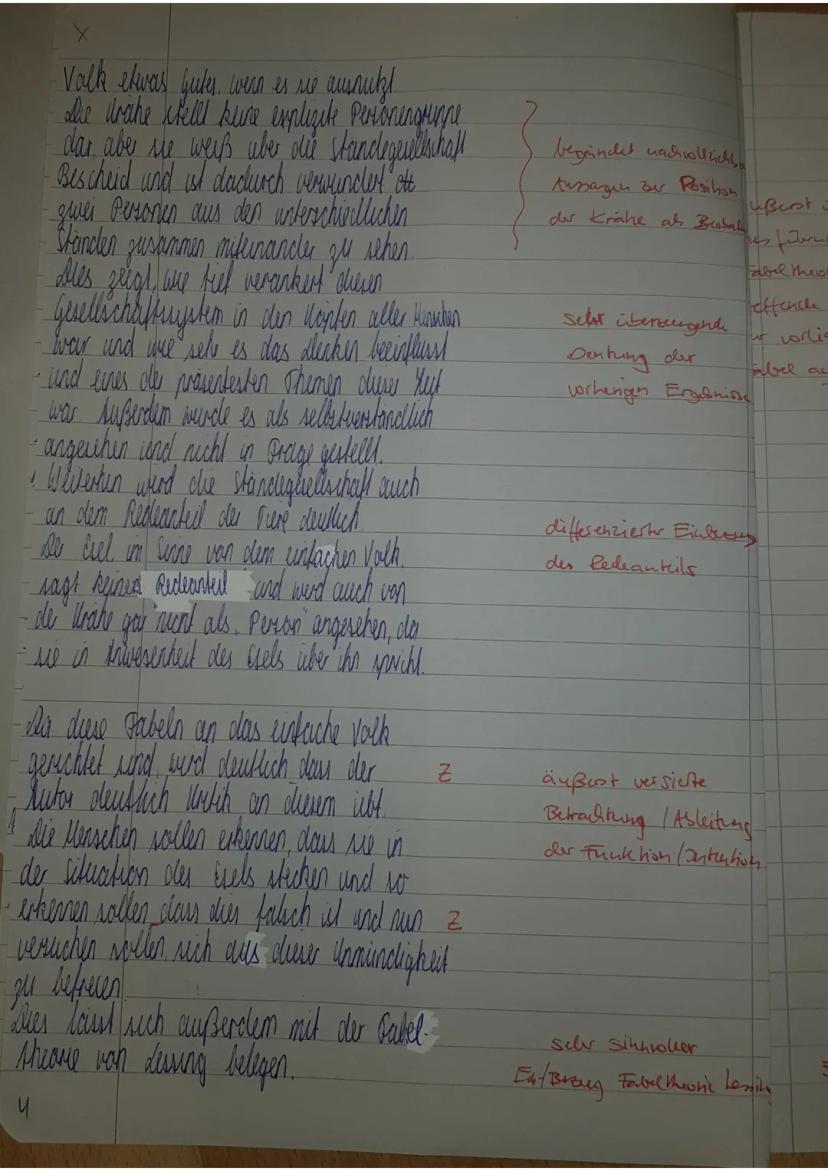 Volk etwas gutes, wenn es sie ausnutzt
Die Krähe stellt keine explizite Personengruppe
dar, aber sie weiß über die Ständegesellschaft
Bescheid und ist dadurch verwundert
zwei Personen aus den unterschiedlichen
Ständen zusammen miteinander zu sehen.
Dies zeigt, wie tief verankert dieses
Gesellschaftssystem in den Köpfen aller Menschen
war und wie sehr es das Denken beeinflusst
und eines der präsentesten Themen dieser Zeit
war. Außerdem wurde es als selbstverständlich
angesehen und nicht in Frage gestellt.
Weiterhin wird die Ständegesellschaft auch
an dem Redeanteil der Tiere deutlich.
Der Esel im Sinne von dem einfachen Volk,
sagt keinen Redeanteil und wird auch von
der Krähe gar nicht als "Person" angesehen, da
sie in Anwesenheit des Esels über ihn spricht.
Da diese Fabeln an das einfache Volk
gerichtet sind, wird deutlich dass der
Autor deutlich Kritik an diesem übt.
Die Menschen sollen erkennen, dass sie in
der Situation des Esels stecken und so
erkennen sollen dass dies falsch ist und nun
versuchen sollen sich aus dieser Unmündigkeit
zu befreien.
Dies lässt sich außerdem mit der Fabel-
theorie von Lessing belegen.
4
begründet
Aussagen zur Position
der Krähe als
sehr überzeugende
Deutung der
vorherigen Ergebnisse
differenzierter
des Redeanteils
Z
äußerst versierte
Betrachtung / Ableitung
der Funktion / Intention
Z
sehr sinnvoller
Fabeltheorie